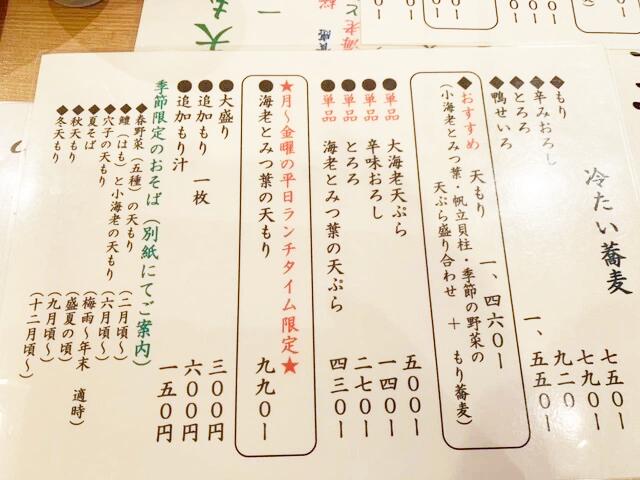 冷たい蕎麦
◆もり 七五〇ー
◆辛みおろし 七九〇ー
◆とろろ 九二〇ー
◆鴨せいろ 一、五五〇ー
◆おすすめ 天もり 一、四六〇ー
(小海老とみつ葉・帆立貝柱・季節の野菜の
天ぷら盛り合わせ + もり蕎麦)
●単品 大海老天ぷら 五〇〇ー
●単品 辛味おろし 一四〇ー
●単品 とろろ 二七〇ー
●単品 海老とみつ葉の天ぷら 四三〇ー
★月〜金曜の平日ランチタイム限定★
●海老とみつ葉の天もり 九九〇ー
●大盛り 三〇〇円
●追加もり 一枚 六〇〇円
●追加もり汁 一五〇円
季節限定のおそば(別紙にてご案内)
◆春野菜(五種)の天もり (二月頃〜)
◆鱧(はも)と小海老の天もり (六月頃〜)
◆穴子の天もり (梅雨〜年末 適時)
◆夏そば (盛夏の頃)
◆秋天もり (九月頃〜)
◆冬天もり (十二月頃〜)